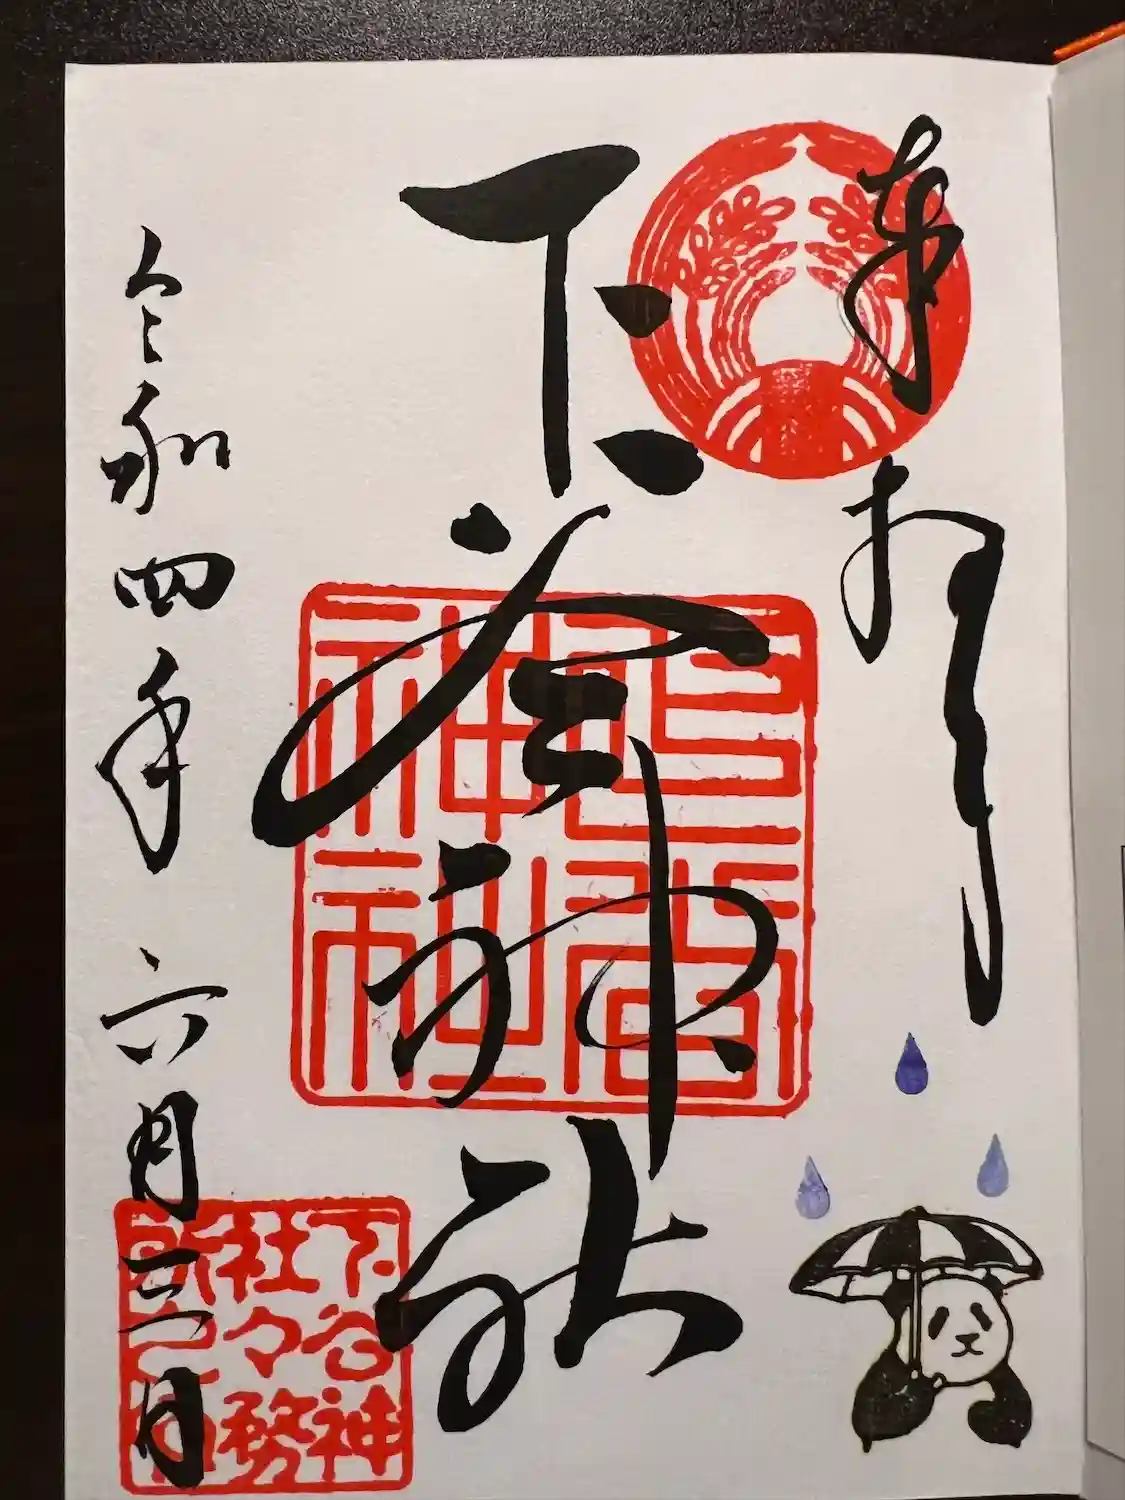 奉拝
下谷神社
下谷
神社
令和四年六月三日
下谷神
社々務
所之印